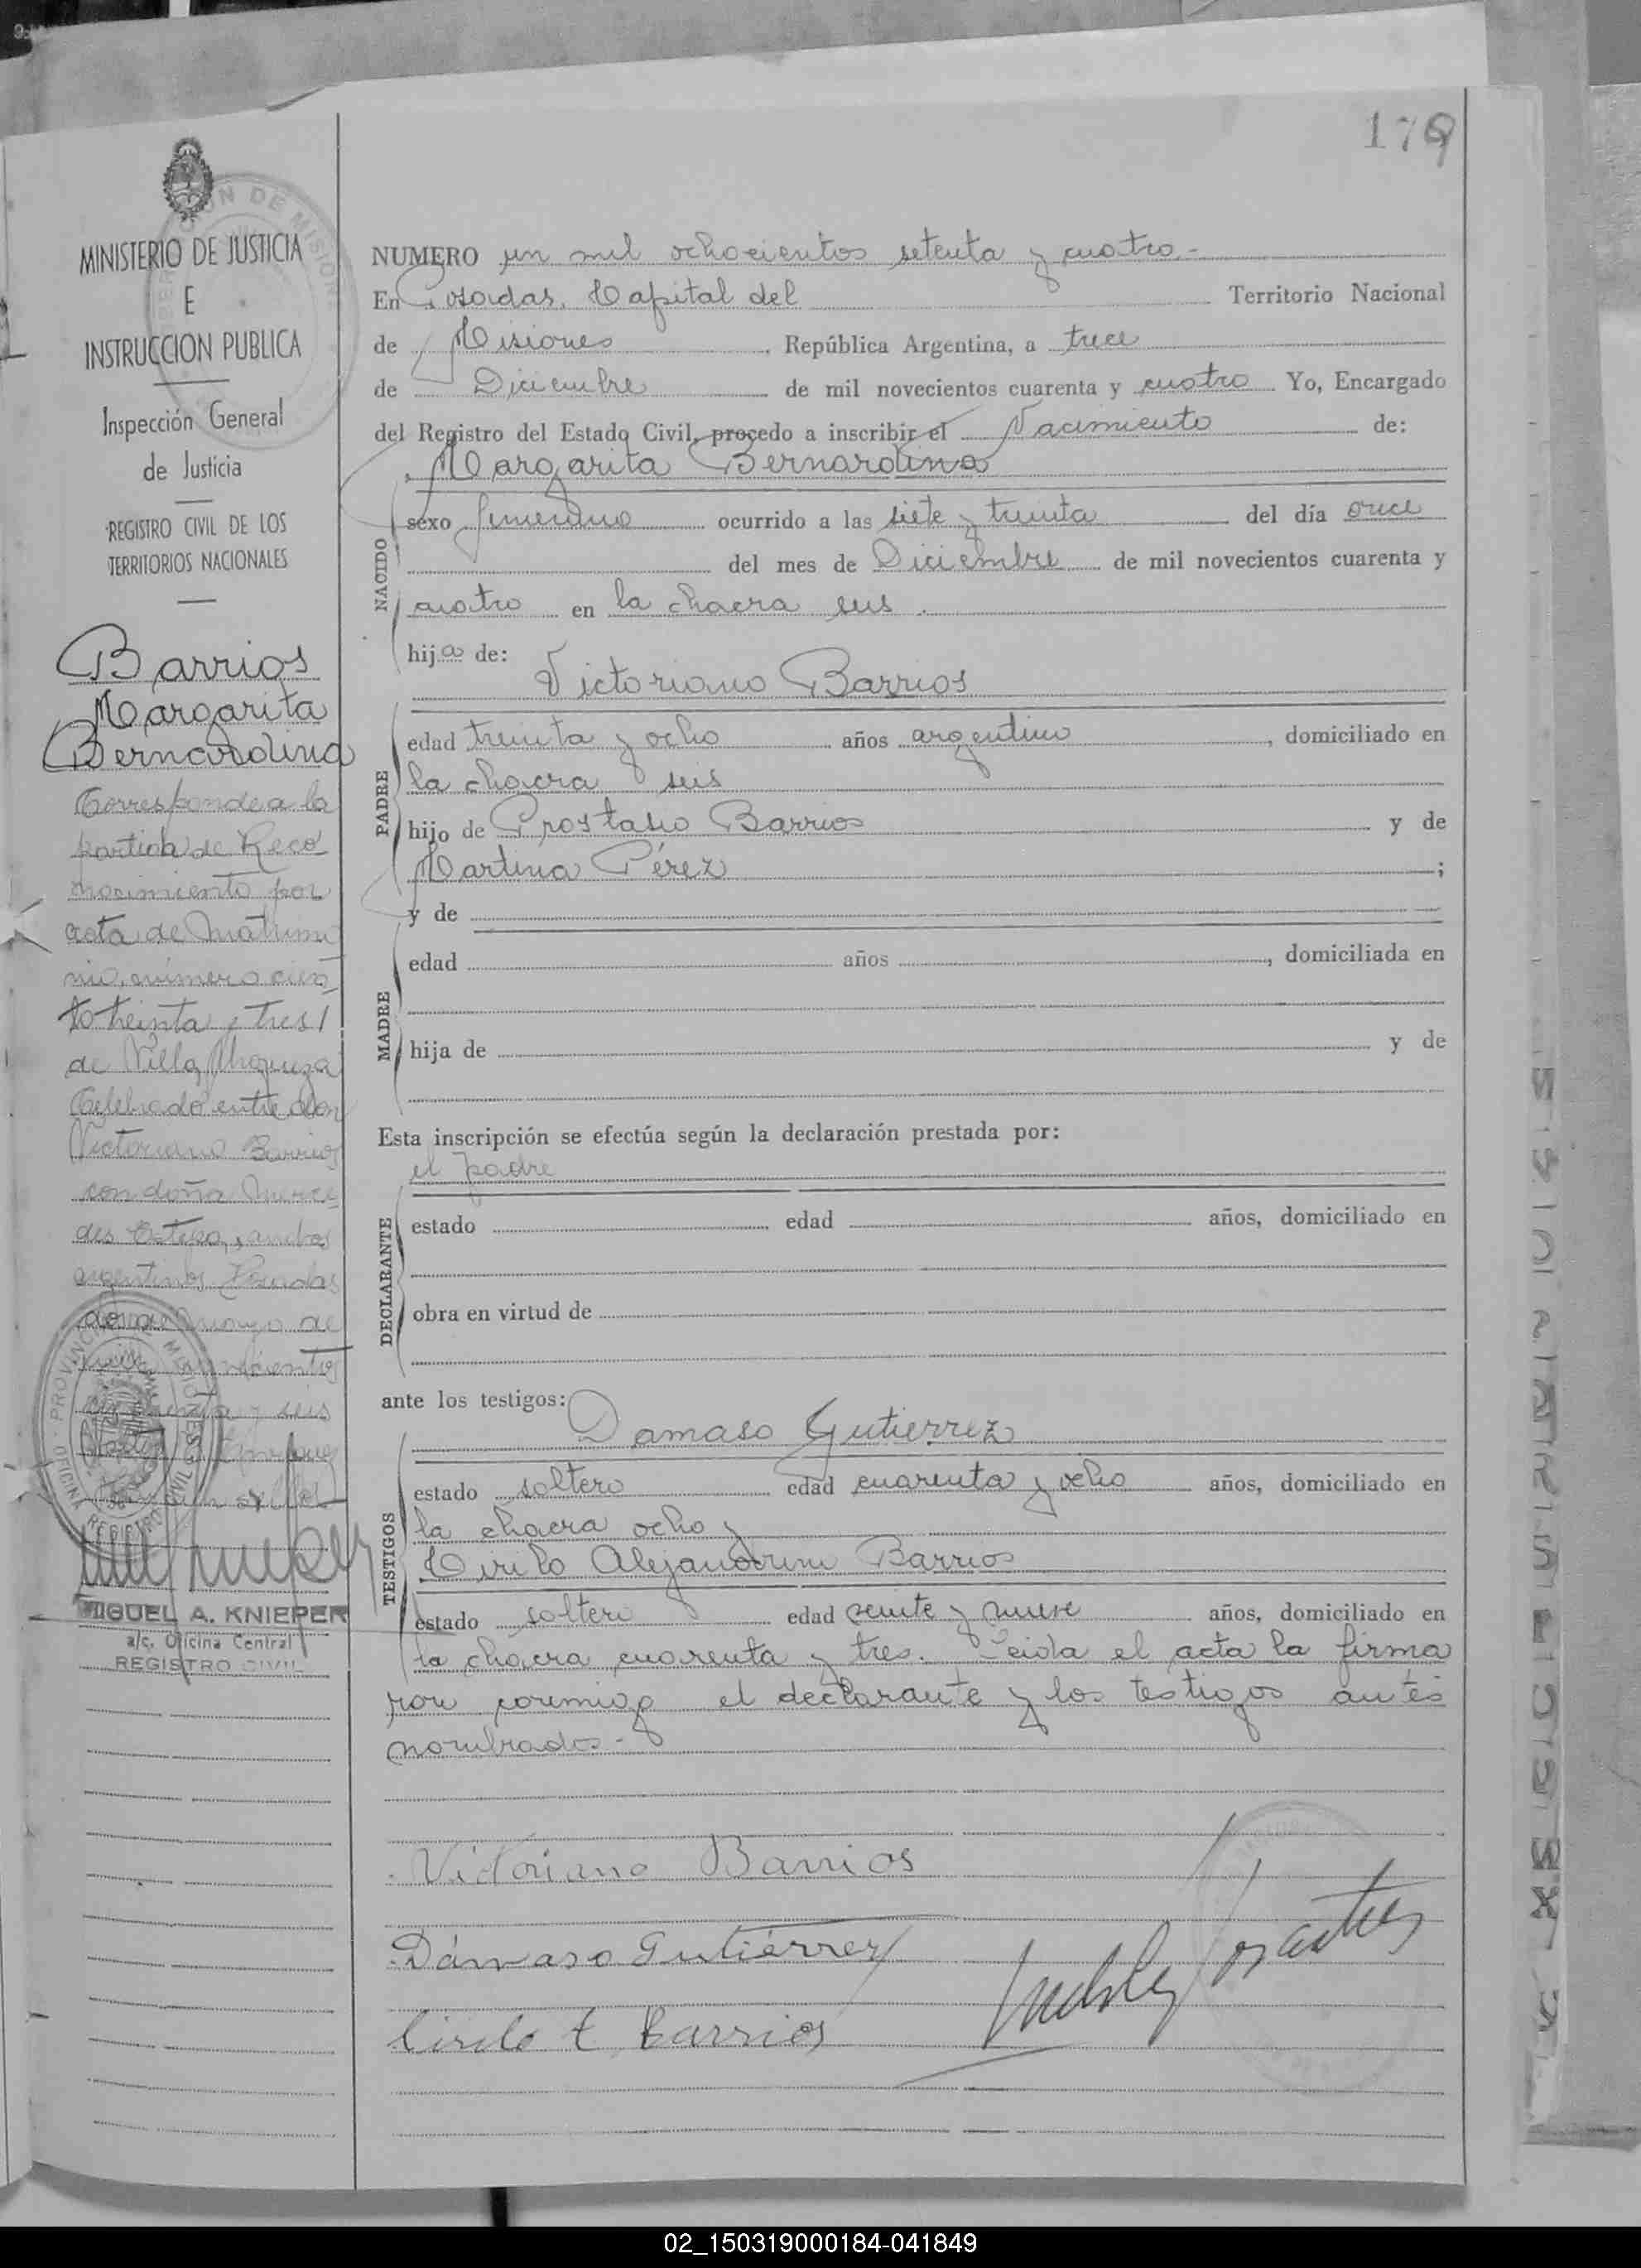 179
MINISTERIO DE JUSTICIA
E
INSTRUCCION PUBLICA
Inspección General
de Justicia
REGISTRO CIVIL DE LOS
TERRITORIOS NACIONALES
Barrios
Margarita
Bernardina
Corresponde a la
partida de Reco
nocimiento por
acta de matrimo
nio, número cien
to treinta y tres
de Villa
Celebrado entre don
Victoriano Barrios
con doña Merce
des ambos
argentinos Posadas
mayo de
mil novecientos
y seis
MIGUEL A. KNIEPER
a/c. Oficina Central
REGISTRO CIVIL
NUMERO un mil ochocientos setenta y cuatro.-
En Posadas, Capital del Territorio Nacional
de Misiones, República Argentina, a trece
de Diciembre de mil novecientos cuarenta y cuatro Yo, Encargado
del Registro del Estado Civil, procedo a inscribir el Nacimiento de:
Margarita Bernardina
NACIDO
sexo femenino ocurrido a las siete y treinta del día once
del mes de Diciembre de mil novecientos cuarenta y
cuatro en la chacra seis.
hija de:
Victoriano Barrios
PADRE
edad treinta y ocho años argentino, domiciliado en
la chacra seis
hijo de Prostasio Barrios y de
Martina Pérez;
y de
MADRE
edad años, domiciliada en
hija de y de
Esta inscripción se efectúa según la declaración prestada por:
el padre
DECLARANTE
estado edad años, domiciliado en
obra en virtud de
ante los testigos:
Damaso Gutierrez
TESTIGOS
estado soltero edad cuarenta y ocho años, domiciliado en
la chacra ocho y
Cirilo Alejandrino Barrios
estado soltero edad veinte y nueve años, domiciliado en
la chacra cuarenta y tres. Leida el acta la firma
ron conmigo el declarante y los testigos antes
nombrados.-
Victoriano Barrios
Dámaso Gutiérrez
Cirilo A. Barrios
02_150319000184-041849